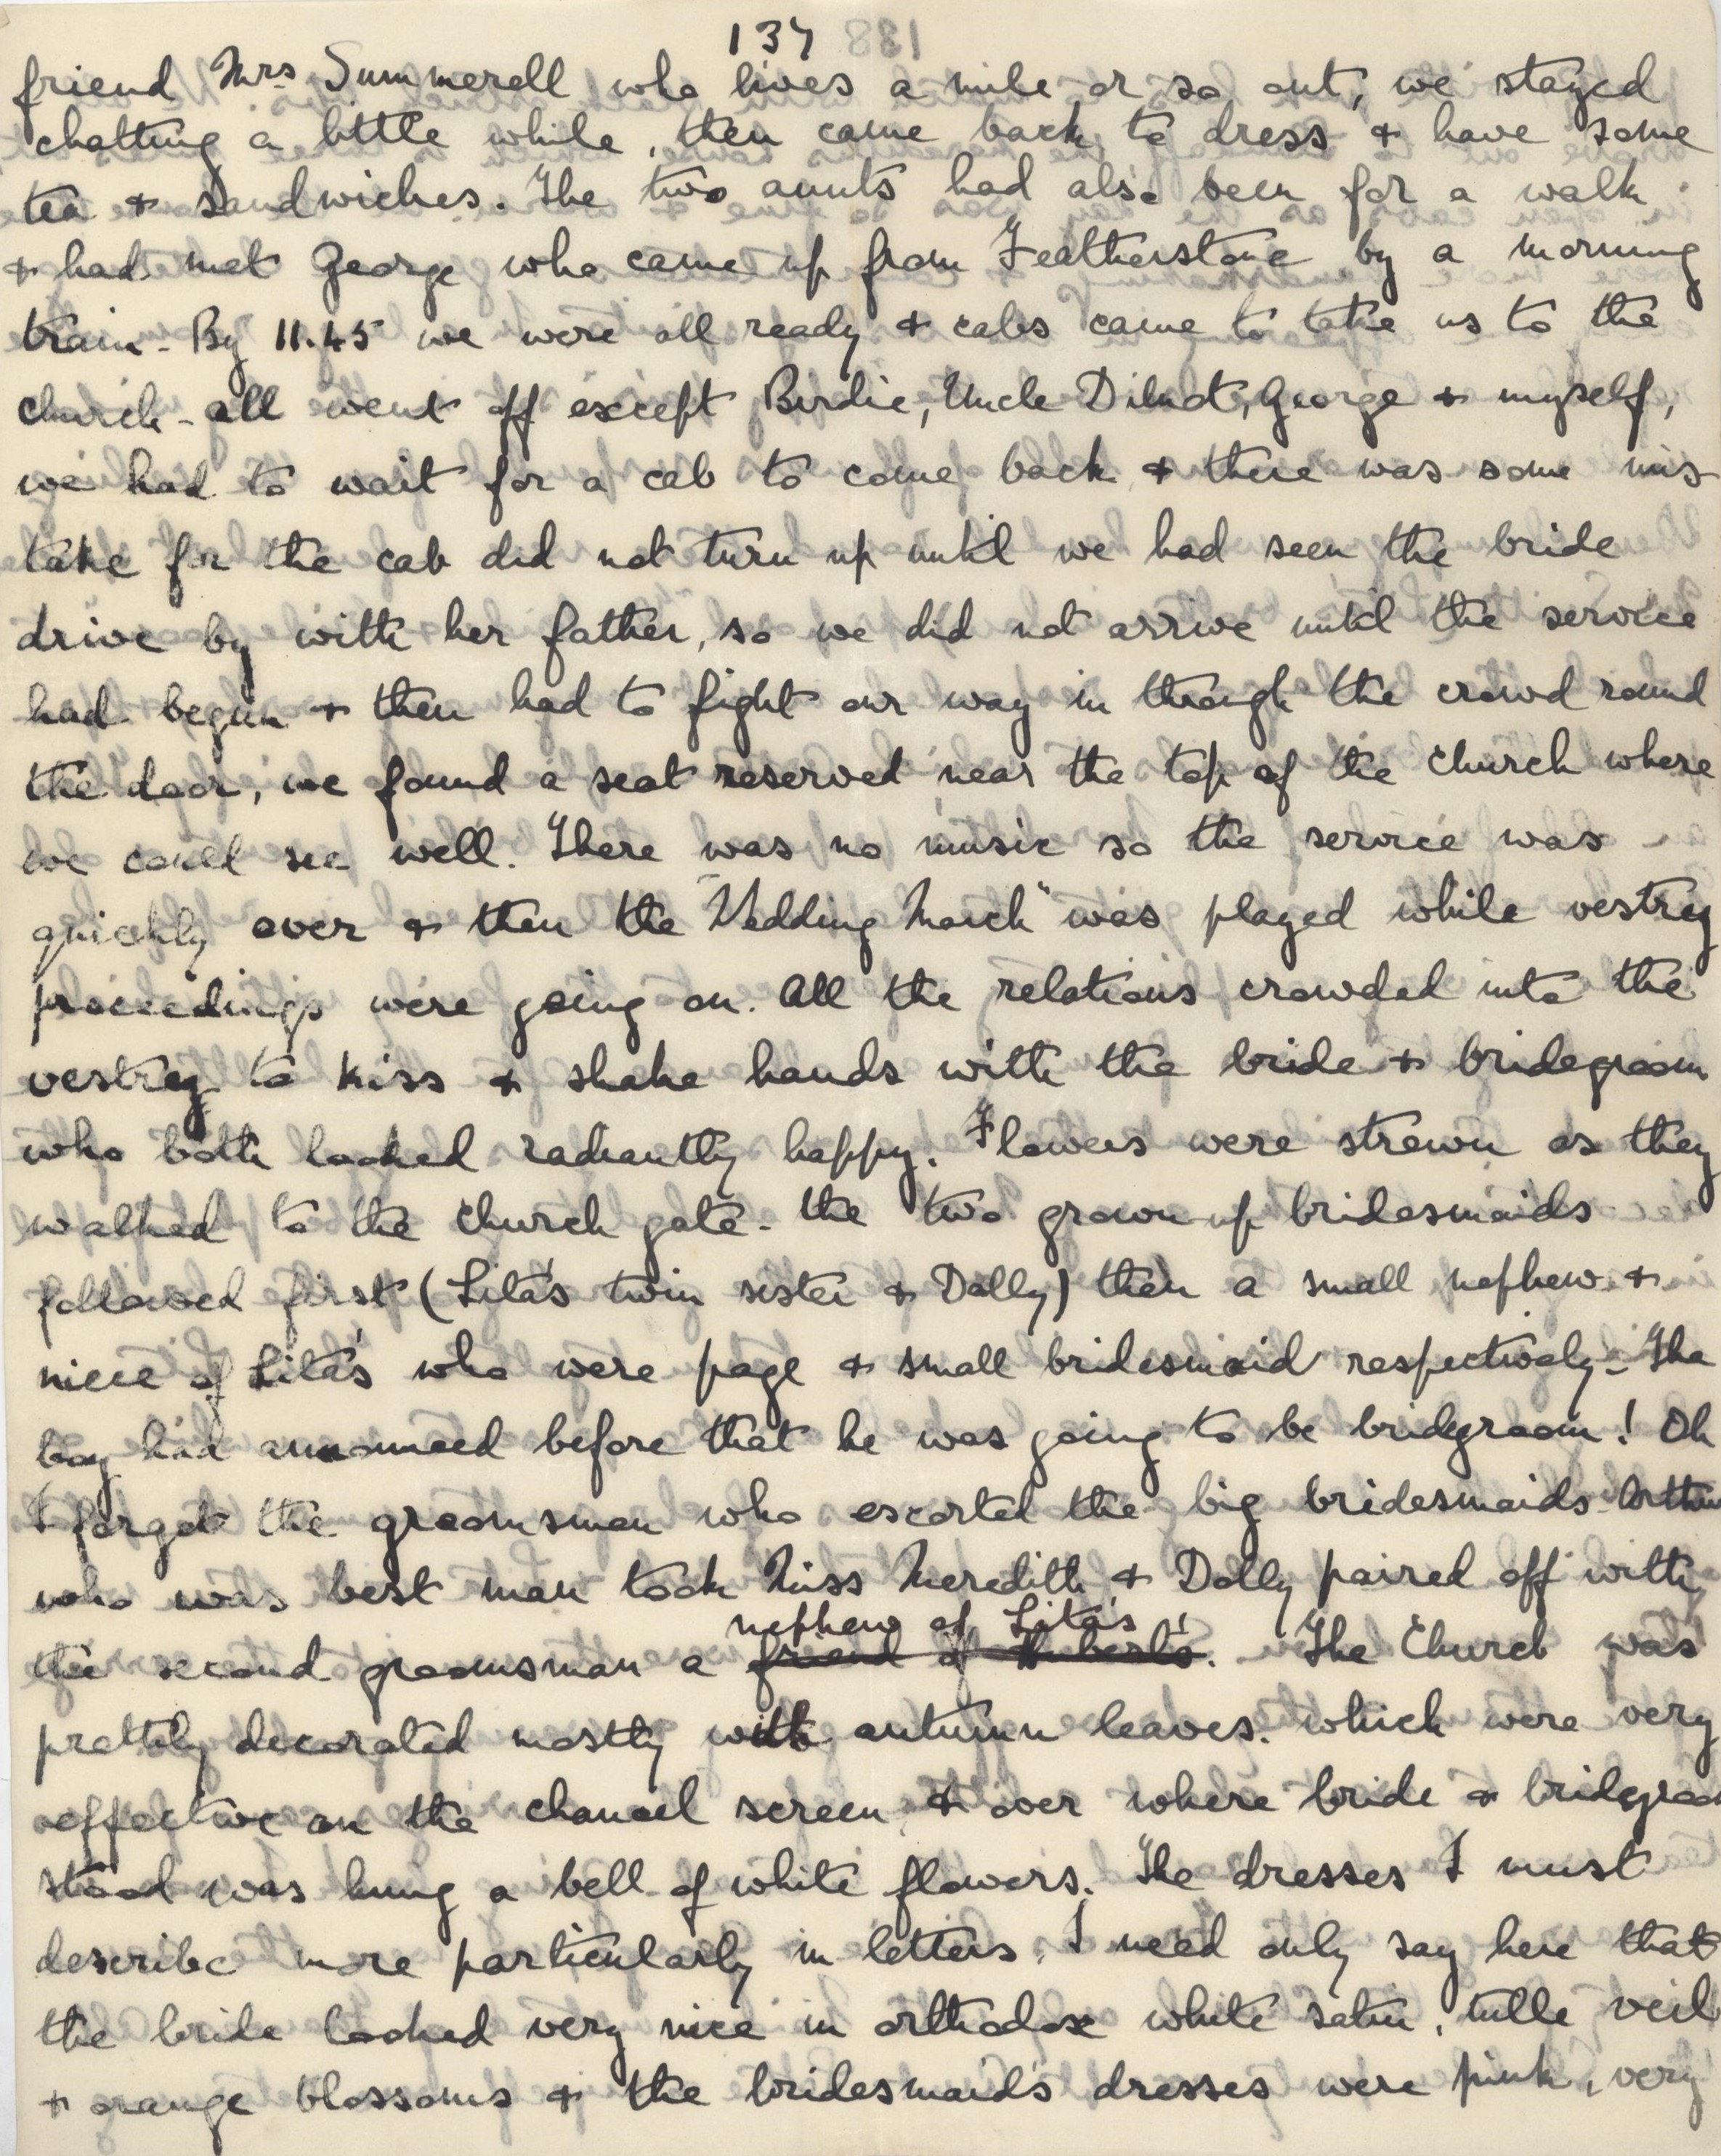 137
friend Mrs Summerell who lives a mile or so out, we stayed
chatting a little while, then came back to dress & have some
tea & sandwiches. The two aunts had also been for a walk
& had met George who came up from Featherstone by a morning
train - By 11.45 we were all ready & cabs came to take us to the
church - all went off except Birdie, Uncle Dilnot, George & myself,
we had to wait for a cab to come back & there was some mis
take for the cab did not turn up until we had seen the bride
drive by with her father, so we did not arrive until the service
had begun & then had to fight our way in through the crowd round
the door, we found a seat reserved near the top of the church where
we could see well. There was no music so the service was
quickly over & then the "Wedding March" was played while vestry
proceedings were going on. All the relations crowded into the
vestry to kiss & shake hands with the bride & bridegroom
who both looked radiantly happy. Flowers were strewn as they
walked to the church gate - the two grown up bridesmaids
followed first (Lita's twin sister & Dolly) then a small nephew &
niece of Lita's who were page & small bridesmaid respectively - The
boy had announced before that he was going to be bridegroom! Oh
I forgot the groomsman who escorted the big bridesmaids - Arthur
who was best man took Miss Meredith & Dolly paired off with
nephew of Lita's
the second groomsman a friend of Huberts. The Church was
prettily decorated mostly with autumn leaves. which were very
effective on the chancel screen, & over where bride & bridegroom
stood was hung a bell of white flowers. The dresses I must
describe more particularly in letters, I need only say here that
the bride looked very nice in orthodox white satin, tulle veil
& orange blossoms & the bridesmaids dresses were pink, very